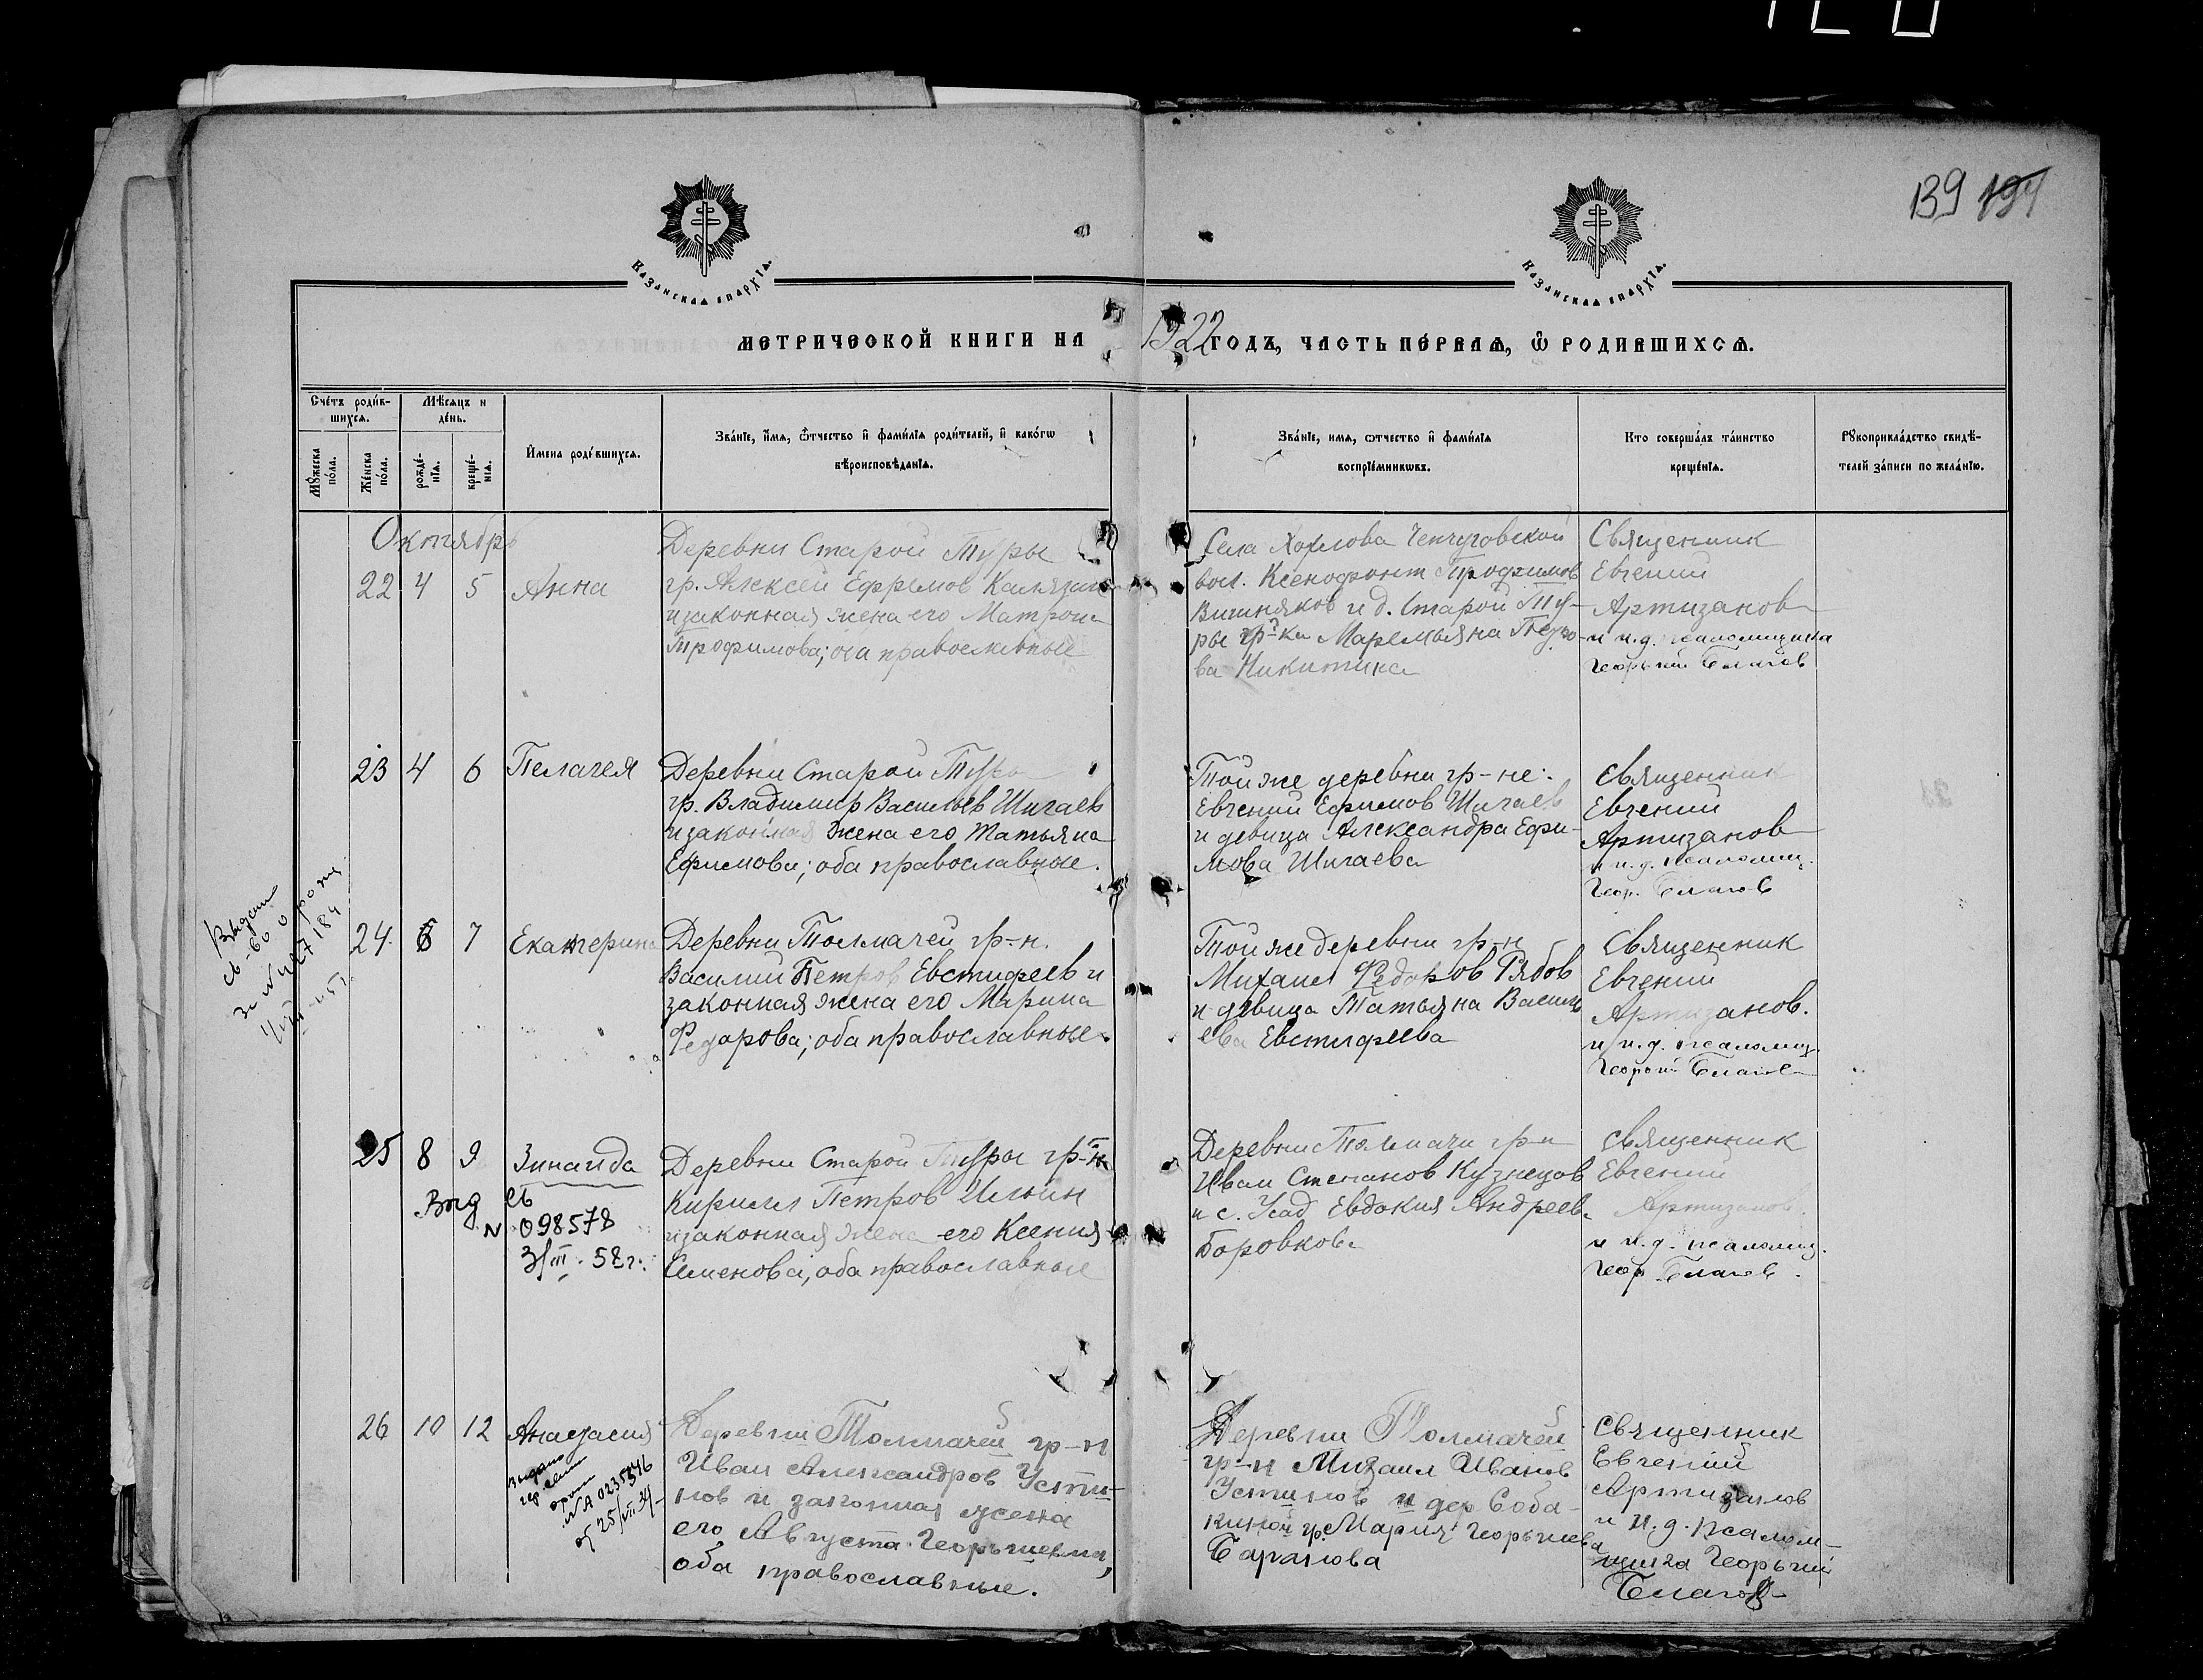 139 194
Казанская епархїа.
Казанская епархїа.
МЕТРИЧЕСКОЙ КНИГИ НА 1922 ГОДЪ, ЧАСТЬ ПЕ́РВАѦ, Ѡ РОДИВШИХСѦ.
Сче́тъ роди́в-
шихсѧ.
Мѣ́сѧцъ и
де́нь.
Мꙋ́жеска
по́ла.
Же́нска
по́ла.
рожде́-
нїѧ.
креще́-
нїѧ.
И҆мена роди́вшихсѧ.
Зва́нїе, и҆́мѧ, ѻ҆́тчество и҆ фами́лїѧ роди́телей, и҆ како́гѡ
вѣроисповѣ́данїѧ.
Зва́нїе, имѧ, ѻтчество и҆ фами́лїѧ
воспрїе́мникѡвъ.
Кто соверша́лъ та́инство
креще́нїѧ.
Рꙋкоприкла́дство свидѣ́-
телей за́писи по жела́нїю.
Октябрь
22 4 5 Анна
Деревни Старой Туры
гр. Алексей Ефремов Калязин
и законная жена его Матрона
Трофимова; оба православные
Села Хохлова Чепчуговской
вол. Ксенофонт Трофимов
и д. Старой Ту-
ры гр-ка Маремьяна
ва Никитина
Священник
Евгений
Артизанов
и и.д. псаломщика
Георгий Благов
23 4 6 Пелагея
Деревни Старой Туры
гр. Владимир Васильев Шигаев
и законная жена его Татьяна
Ефимова; оба православные.
Той же деревни гр-не:
Евгений Ефимов Шигаев
и девица Александра Ефи-
мова Шигаева
Священник
Евгений
Артизанов
и и.д. псаломщ.
Геор. Благов
Выдан
св-во о рожд
за № 427184
24. 6 7 Екатерина
Деревни Толмачей гр-н.
Василий Петров Евстифеев и
законная жена его Марина
Федорова; оба православные.
Той же деревни гр-н
Михаил Федоров Рябов
и девица Татьяна Василь
ева Евстифеева
Священник
Евгений
Артизанов.
и и.д. псаломщ.
Георгий Благов
25 8 9 Зинаида
Выд св
№ 098578
3/III. 58г.
Деревни Старой Туры гр-н
Кирилл Петров Ильин
и законная жена его Ксения
Семенова, оба православные
Деревни Толмачи гр-н
Иван Степанов Кузнецов
и с. Усад Евдокия Андреева
Боровкова
Священник
Евгений
Артизанов.
и и.д. псаломщ.
Геор. Благов.
26 10 12 Анастасия
Выдано
№ А 0235546
от 25/VII 34
Деревни Толмачей гр-н
Иван Александров Усти-
нов и законная жена
его Августа Георгиевна,
оба православные.
Деревни Толмачей
гр-н Михаил Иванов
Устинов и дер Соба-
киной гр. Мария Георгиева
Баранова
Священник
Евгений
Артизанов
и и.д. псалом-
щика Георгий
Благов